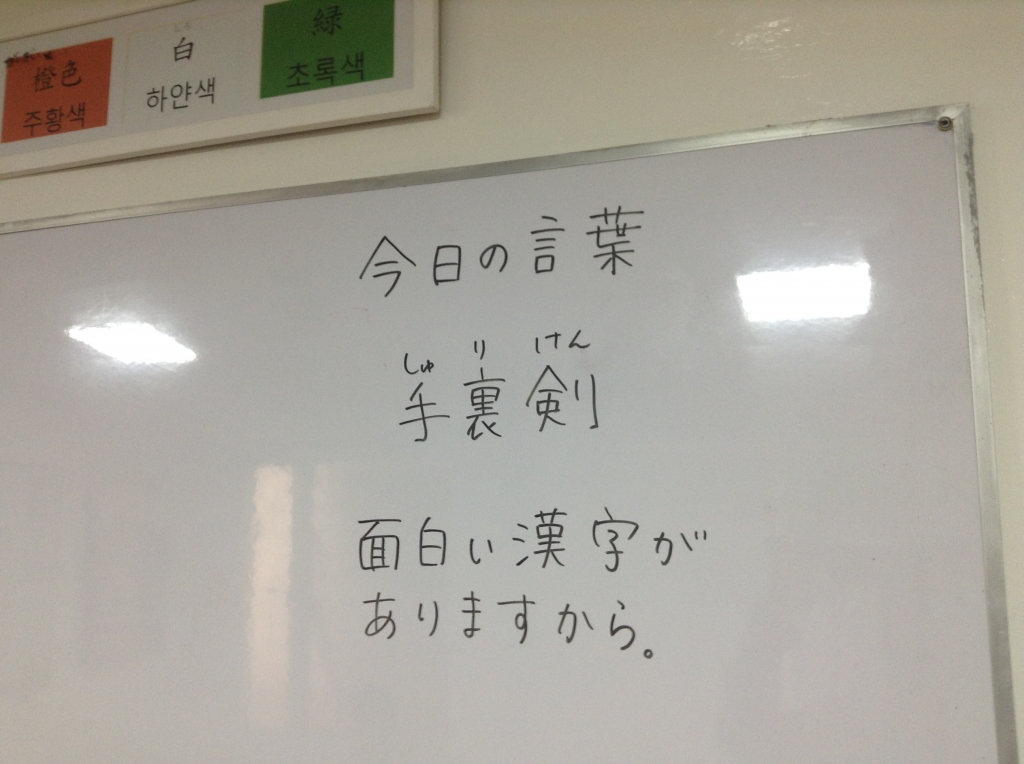 橙色 白 緑
주황색 하얀색 초록색
今日の言葉
しゅ り けん
手裏剣
面白い漢字が
ありますから。